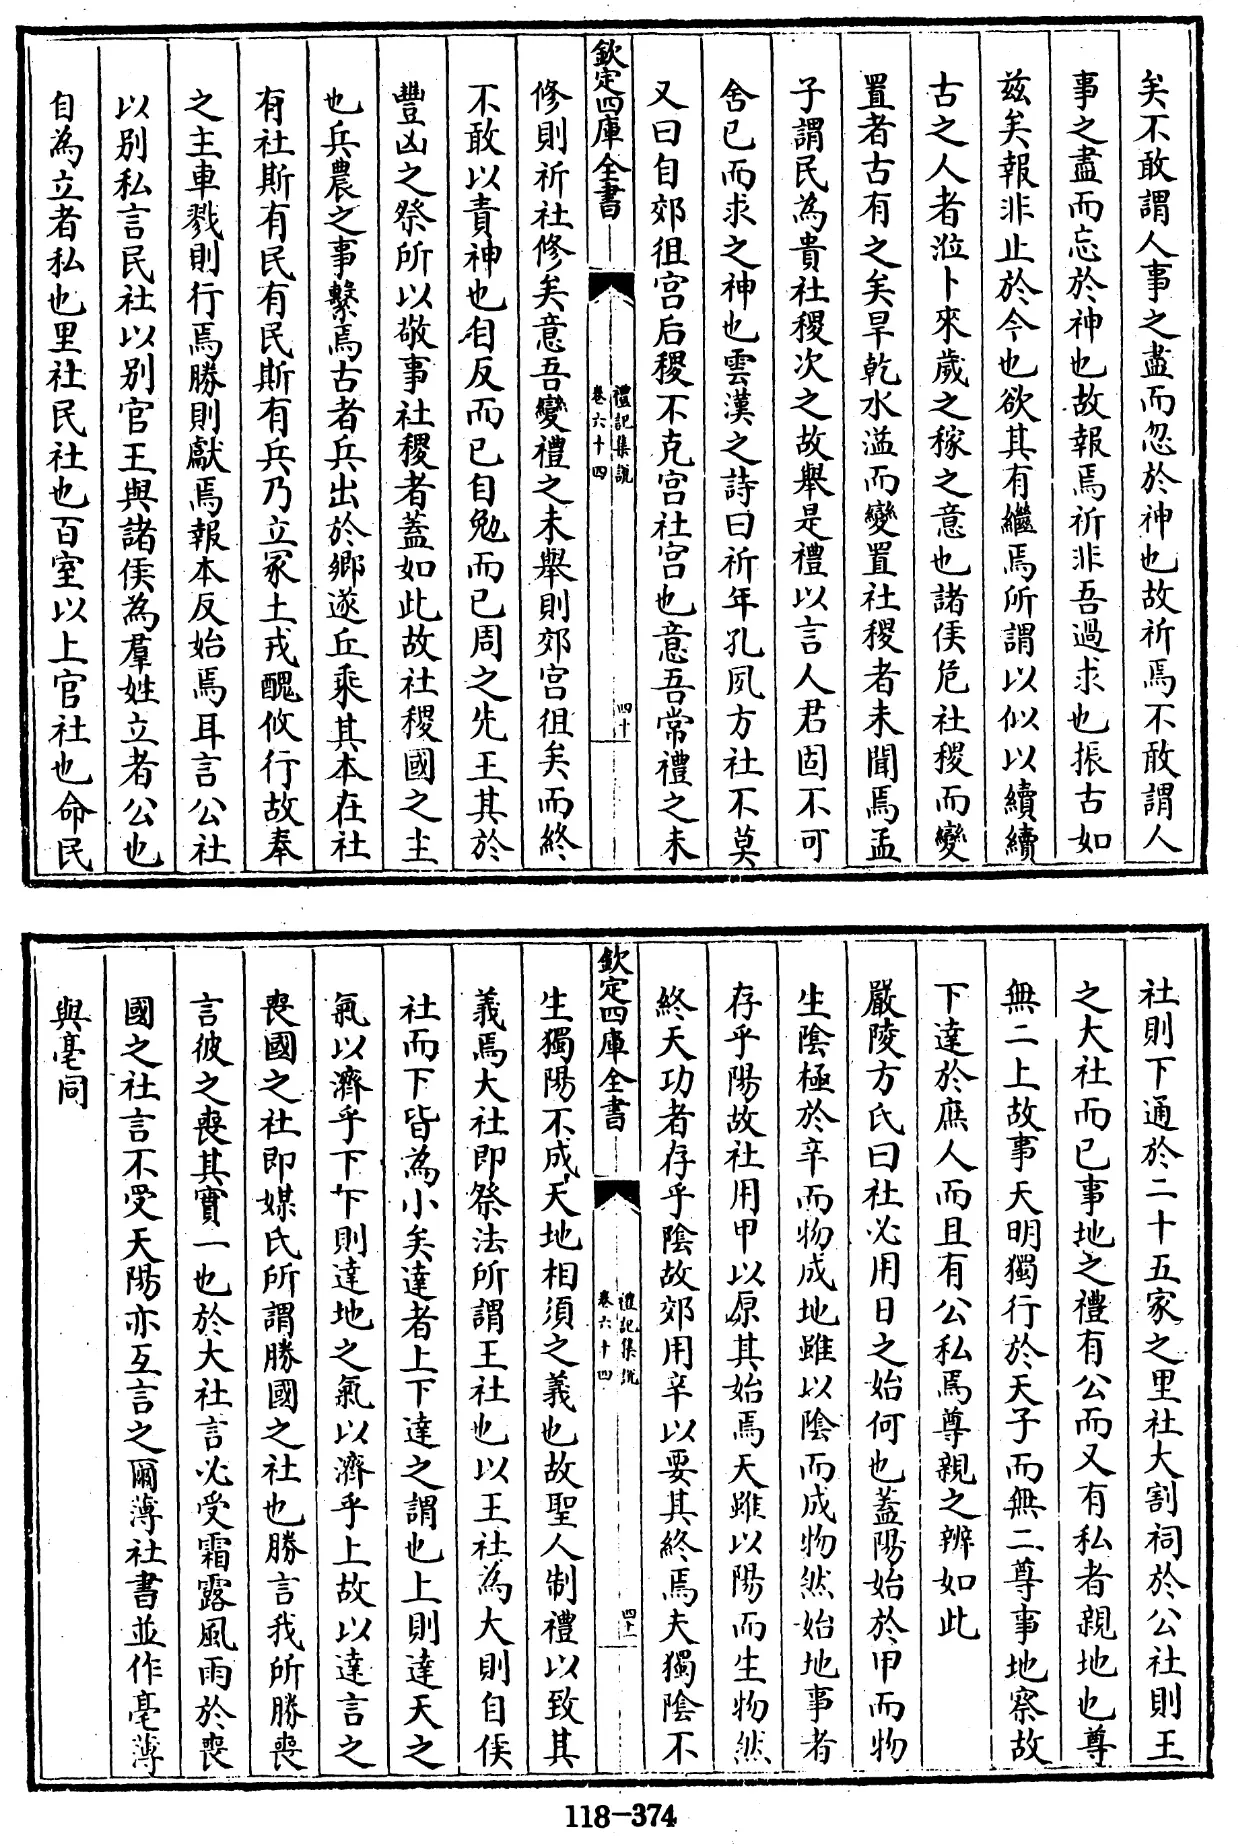 矣不敢謂人事之盡而忽於神也故祈焉不敢謂人
事之盡而忘於神也故報焉祈非吾過求也振古如
兹矣報非止於今也欲其有繼焉所謂以似以續續
古之人者涖卜來歲之稼之意也諸侯危社稷而變
置者古有之矣旱乾水溢而變置社稷者未聞焉孟
子謂民為貴社稷次之故舉是禮以言人君固不可
舍已而求之神也雲漢之詩曰祈年孔夙方社不莫
又曰自郊徂宫后稷不克宫社宫也意吾常禮之未
欽定四庫全書
禮記集說
卷六十四
四十
修則祈社修矣意吾變禮之未舉則郊宫徂矣而終
不敢以責神也自反而已自勉而已周之先王其於
豐凶之祭所以敬事社稷者蓋如此故社稷國之主
也兵農之事繫焉古者兵出於鄉遂丘乘其本在社
有社斯有民有民斯有兵乃立冢土戎醜攸行故奉
之主車戮則行焉勝則獻焉報本反始焉耳言公社
以别私言民社以别官王與諸侯為羣姓立者公也
自為立者私也里社民社也百室以上官社也命民
社則下通於二十五家之里社大割祠於公社則王
之大社而已事地之禮有公而又有私者親地也尊
無二上故事天明獨行於天子而無二尊事地察故
下達於庶人而且有公私焉尊親之辨如此
嚴陵方氏曰社必用日之始何也蓋陽始於甲而物
生陰極於辛而物成地雖以陰而成物然始地事者
存乎陽故社用甲以原其始焉天雖以陽而生物然
終天功者存乎陰故郊用辛以要其終焉夫獨陰不
欽定四庫全書
禮記集說
卷六十四
四十一
生獨陽不成天地相須之義也故聖人制禮以致其
義焉大社即祭法所謂王社也以王社為大則自侯
社而下皆為小矣達者上下達之謂也上則達天之
氣以濟乎下下則達地之氣以濟乎上故以達言之
喪國之社即媒氏所謂勝國之社也勝言我所勝喪
言彼之喪其實一也於大社言必受霜露風雨於喪
國之社言不受天陽亦互言之爾薄社書並作亳薄
與亳同
118-374